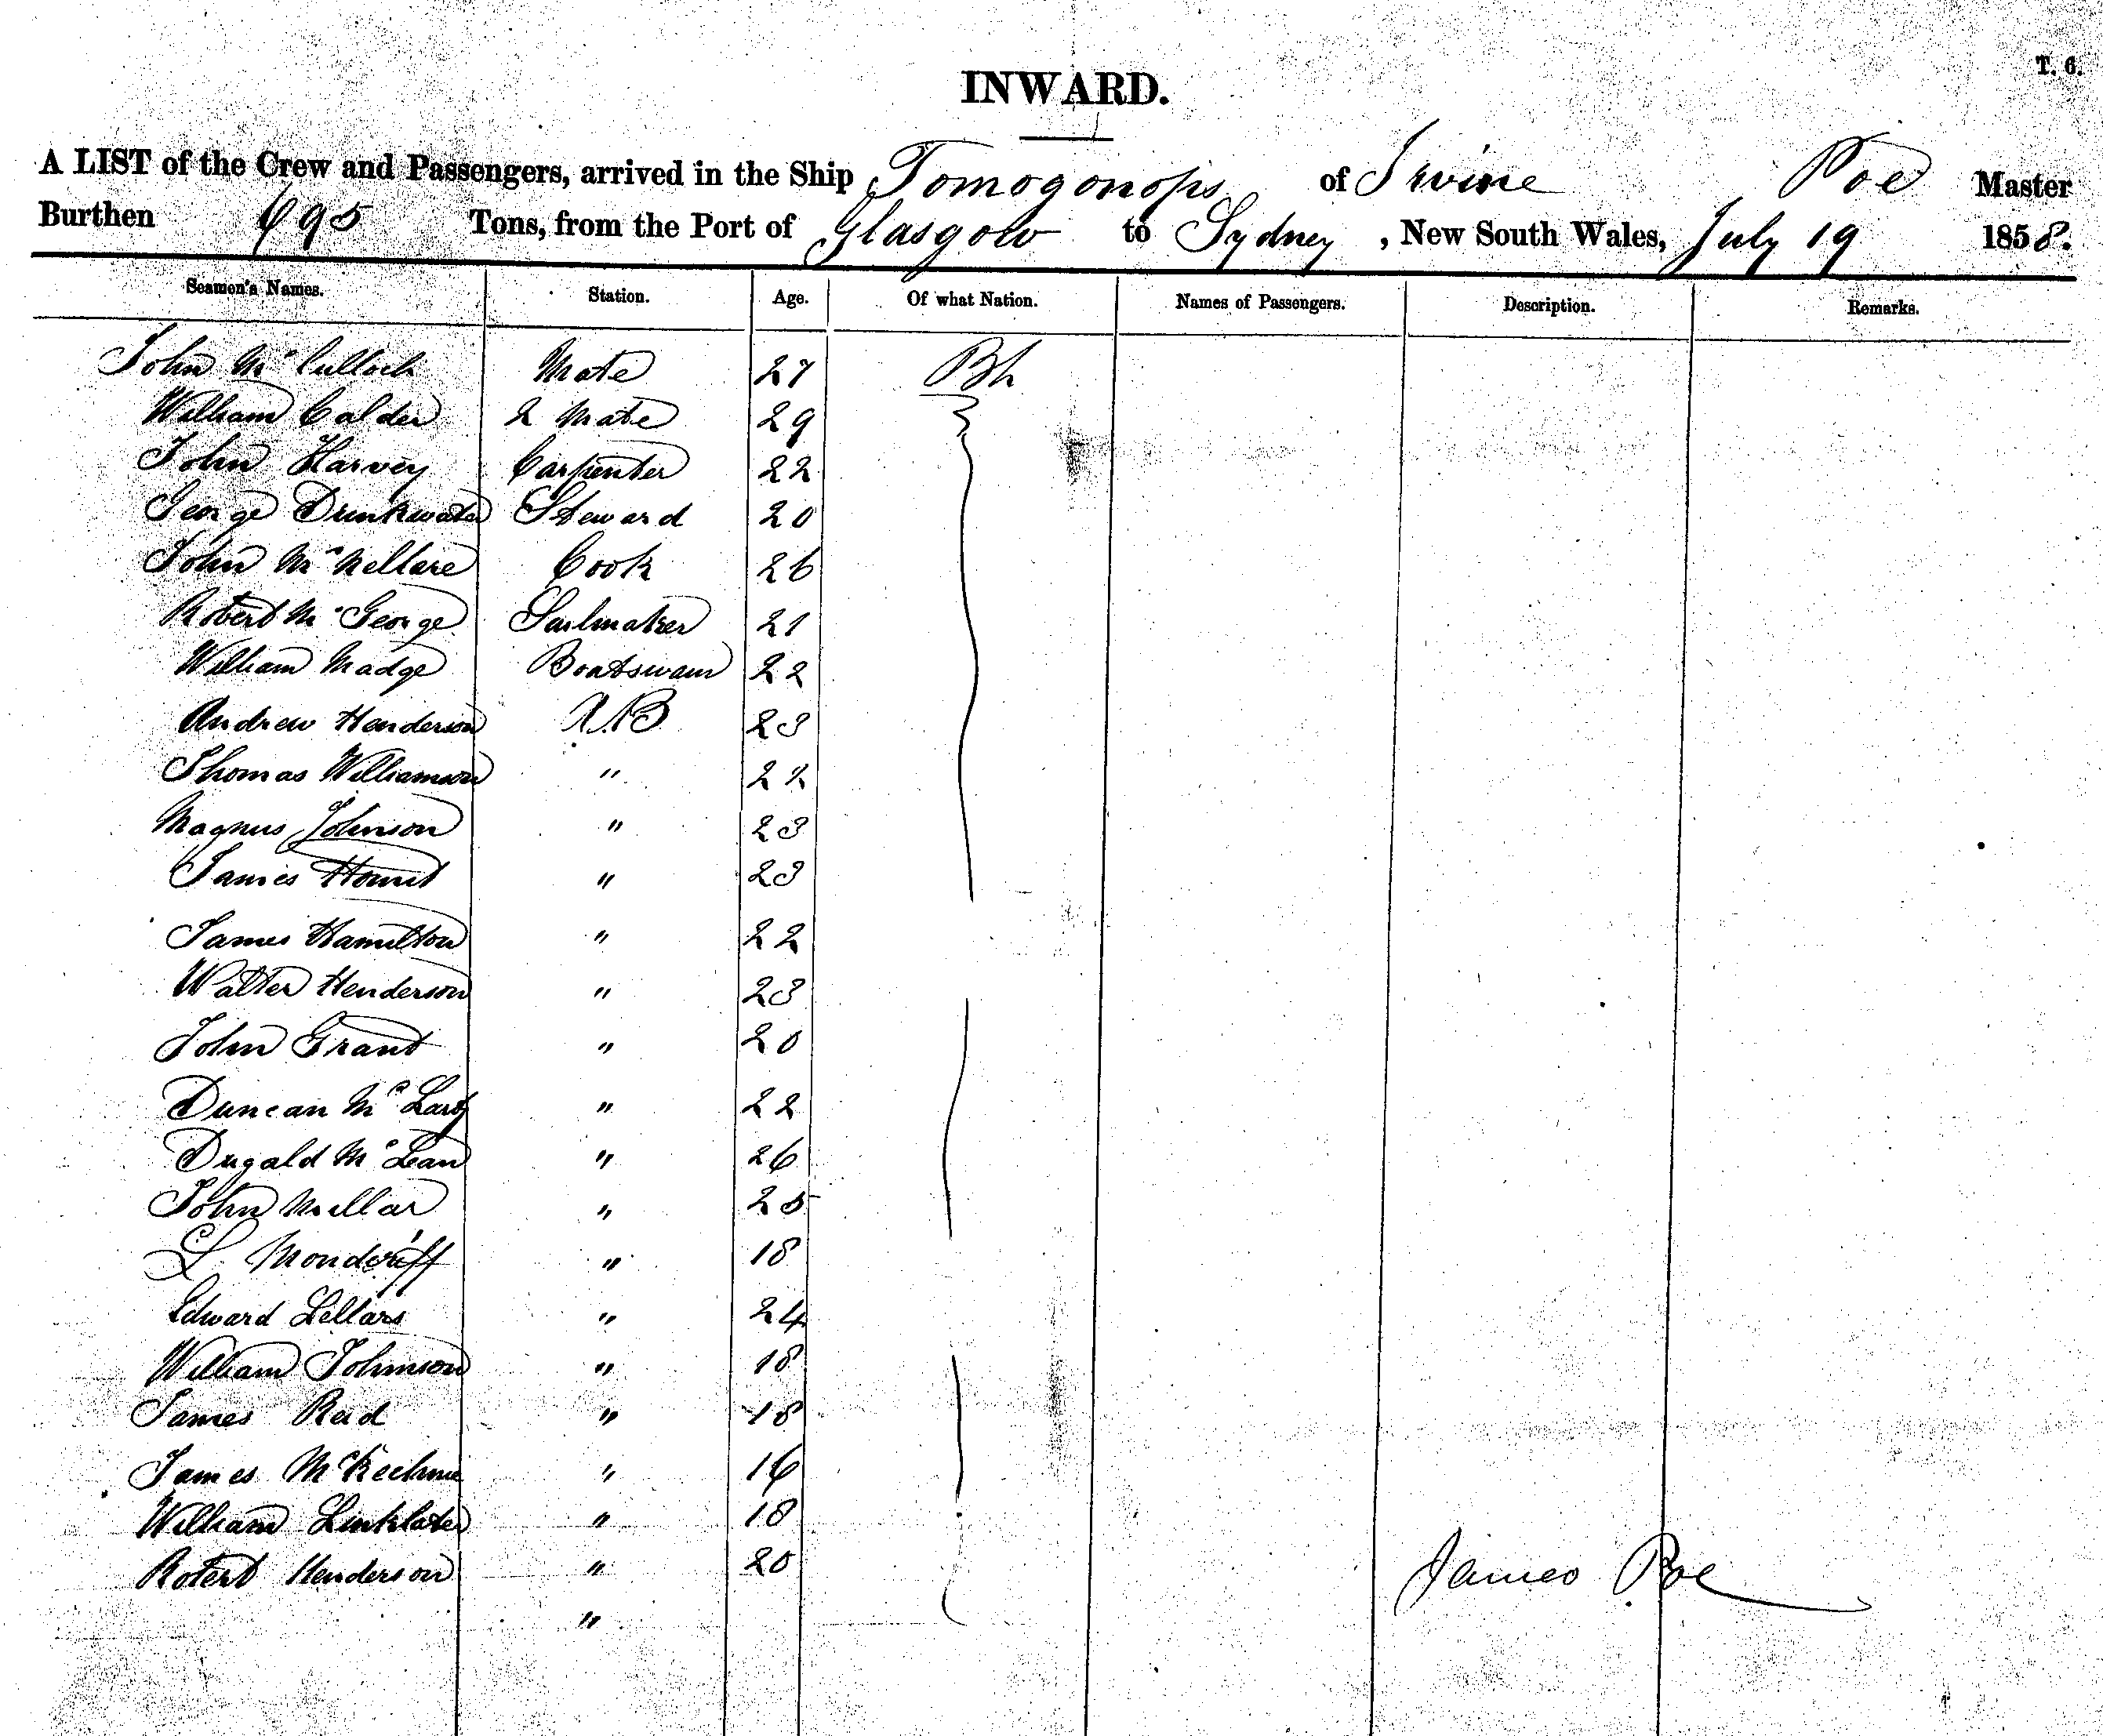 T. 6.
INWARD.
A LIST of the Crew and Passengers, arrived in the Ship Tomogonops of Irvine Poe Master
Burthen 695 Tons, from the Port of Glasgow to Sydney, New South Wales, July 19 1858.
Seamen's Names. Station. Age. Of what Nation. Names of Passengers. Description. Remarks.
John McCulloch Mate 27 Bh
William Calder 2 Mate 29
John Harvey Carpenter 22
George Drinkwater Steward 20
John McKellare Cook 26
Robert McGeorge Sailmaker 21
William Madge Boatswain 22
Andrew Henderson AB 23
Thomas Williamson " 22
Magnus Johnson " 23
James " 23
James Hamilton " 22
Walter Henderson " 23
John Grant " 20
Duncan " 22
Dugald McLean " 26
John Millar "
L. Mondcriff " 18
Edward " 24
William Johnson " 18
James Reid " 18
James McKechnie " 16
William Linklater " 18
Robert Henderson " 20
"
James Poe